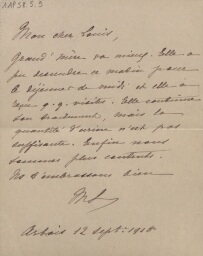 Mon cher Louis,
Grand'mère va mieux. Elle a
pu descendre ce matin pour
le déjeuner de midi et elle a
reçu q.q. visites. Elle continue
son traitement, mais la
quantité d'urine n'est pas
suffisante. Enfin nous
sommes plus contents.
Ns t'embrassons bien
Arbois 12 sept. 1908